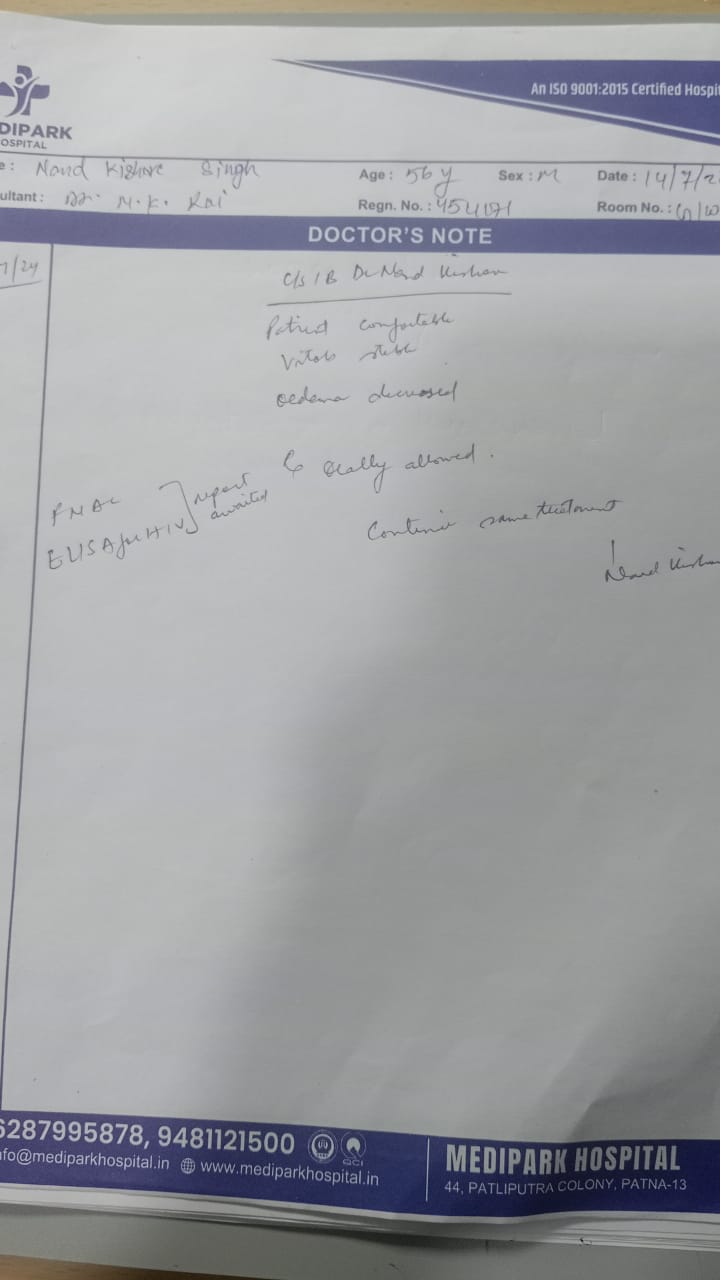 An ISO 9001:2015 Certified Hospit
DIPARK
OSPITAL
e : Nand Kishore Singh Age : 56 y Sex : M Date : 14/7/2
ultant : Dr. N.K. Rai Regn. No. : Room No. : G/W
DOCTOR'S NOTE
7/24
C/S/B Dr Nand Kishore
Patient comfortable
Vitals stable
oedema decreased
orally allowed.
FNAC
ELISA for HIV
report
awaited
Continue same treatment
Nand Kishor
6287995878, 9481121500
nfo@mediparkhospital.in www.mediparkhospital.in
QCI
MEDIPARK HOSPITAL
44, PATLIPUTRA COLONY, PATNA-13